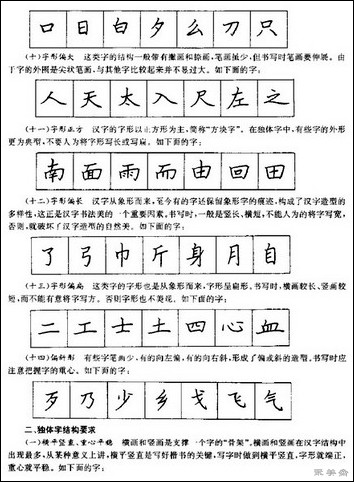 口 日 白 夕 么 刀 只
(十)字形偏大 这类字的结构一般带有撇画和捺画,笔画虽少,但书写时笔画要伸展。由
于字的外围是尖状笔画,与其他字比较起来并不显过大。如下面的字:
人 天 太 入 尺 左 之
(十一)字形正方 汉字的字形以正方形为主,简称“方块字”。在独体字中,有些字的外形
更为典型,不要人为将字形写长或写扁。如下面的字:
南 面 雨 而 由 回 田
(十二)字形偏长 汉字从象形而来,至今有的字还保留象形字的痕迹,构成了汉字造型的
多样性,这正是汉字书法美的一个重要因素。书写时,一般是竖长、横短,不能人为的将字写宽,
否则,就破坏了汉字造型的自然美。如下面的字:
了 弓 巾 斤 身 月 自
(十三)字形偏扁 这类字的字形也是从象形而来,字形呈扁形。书写时,横画较长、竖画较
短,而不能有意将字写方。否则字形也不美观。如下面的字:
二 工 士 土 四 心 血
(十四)偏斜形 有些字笔画少,有的向左偏,有的向右斜,形成了偏或斜的造型。书写时应
注意把握字的重心。如下面的字:
歹 乃 少 乡 戈 飞 气
二、独体字结构要求
(一)横平竖直、重心平稳 横画和竖画是支撑一个字的“骨架”,横画和竖画在汉字结构中
出现最多,从某种意义上讲,横平竖直是写好楷书的关键,写字时做到横平竖直,字形就端正,
重心就平稳。如下面的字: